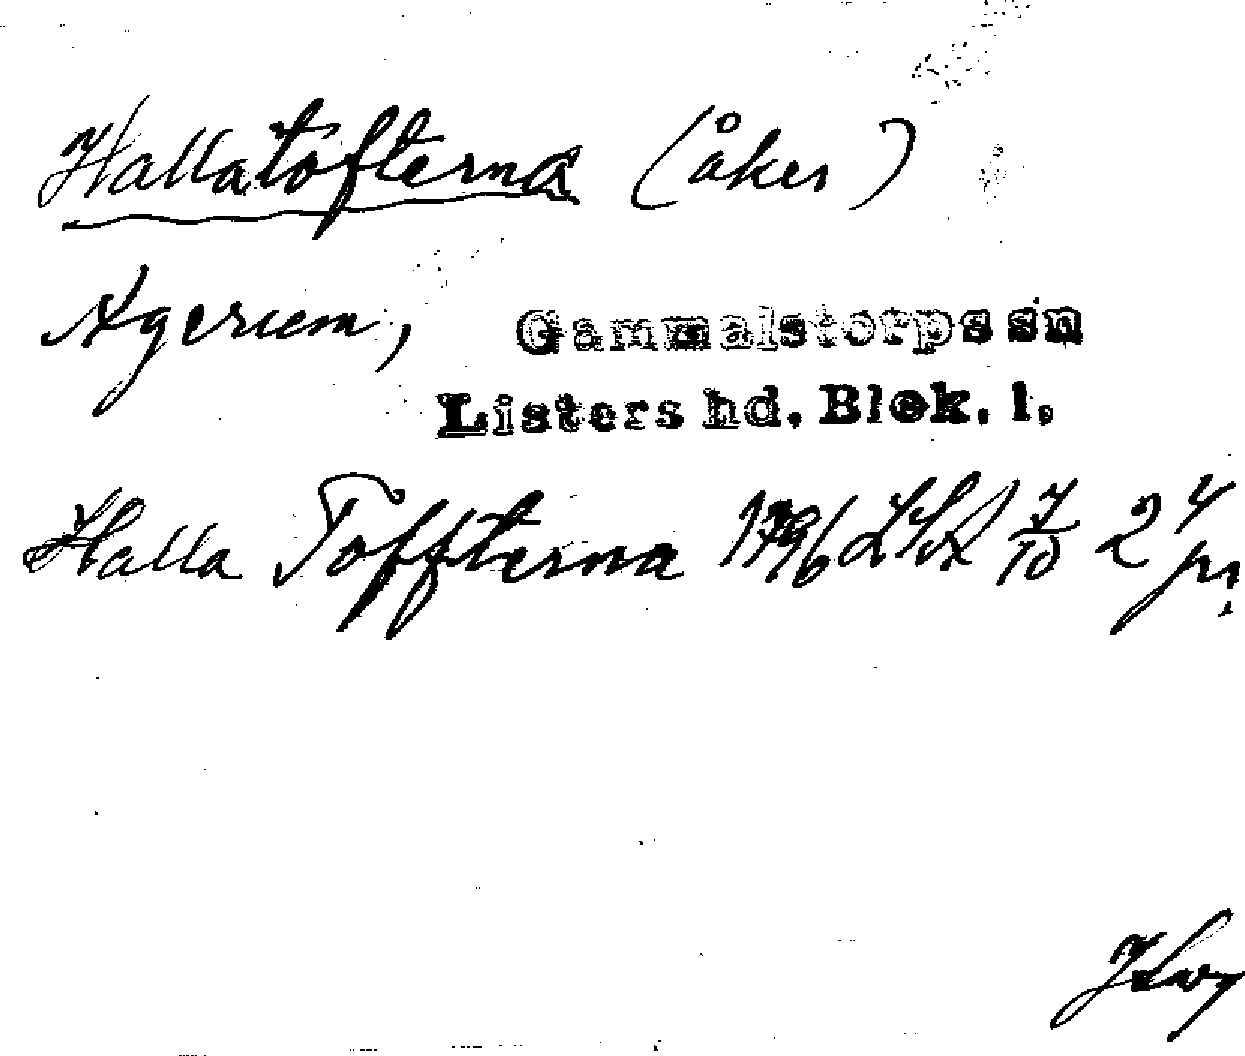 Hallatofterna (åker)
Agerum,
Gammalstorps sn
Listers hd. Blek. l.
Halla Toffterna 1796 LSA 7/10 24